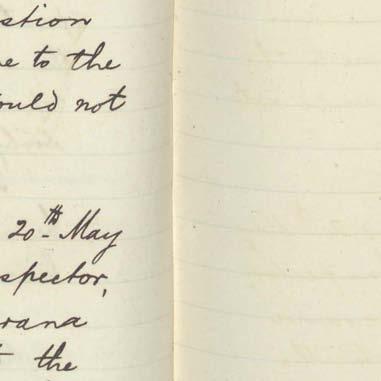 stion
e to the
ould not
20th May
spector,
rana
t the